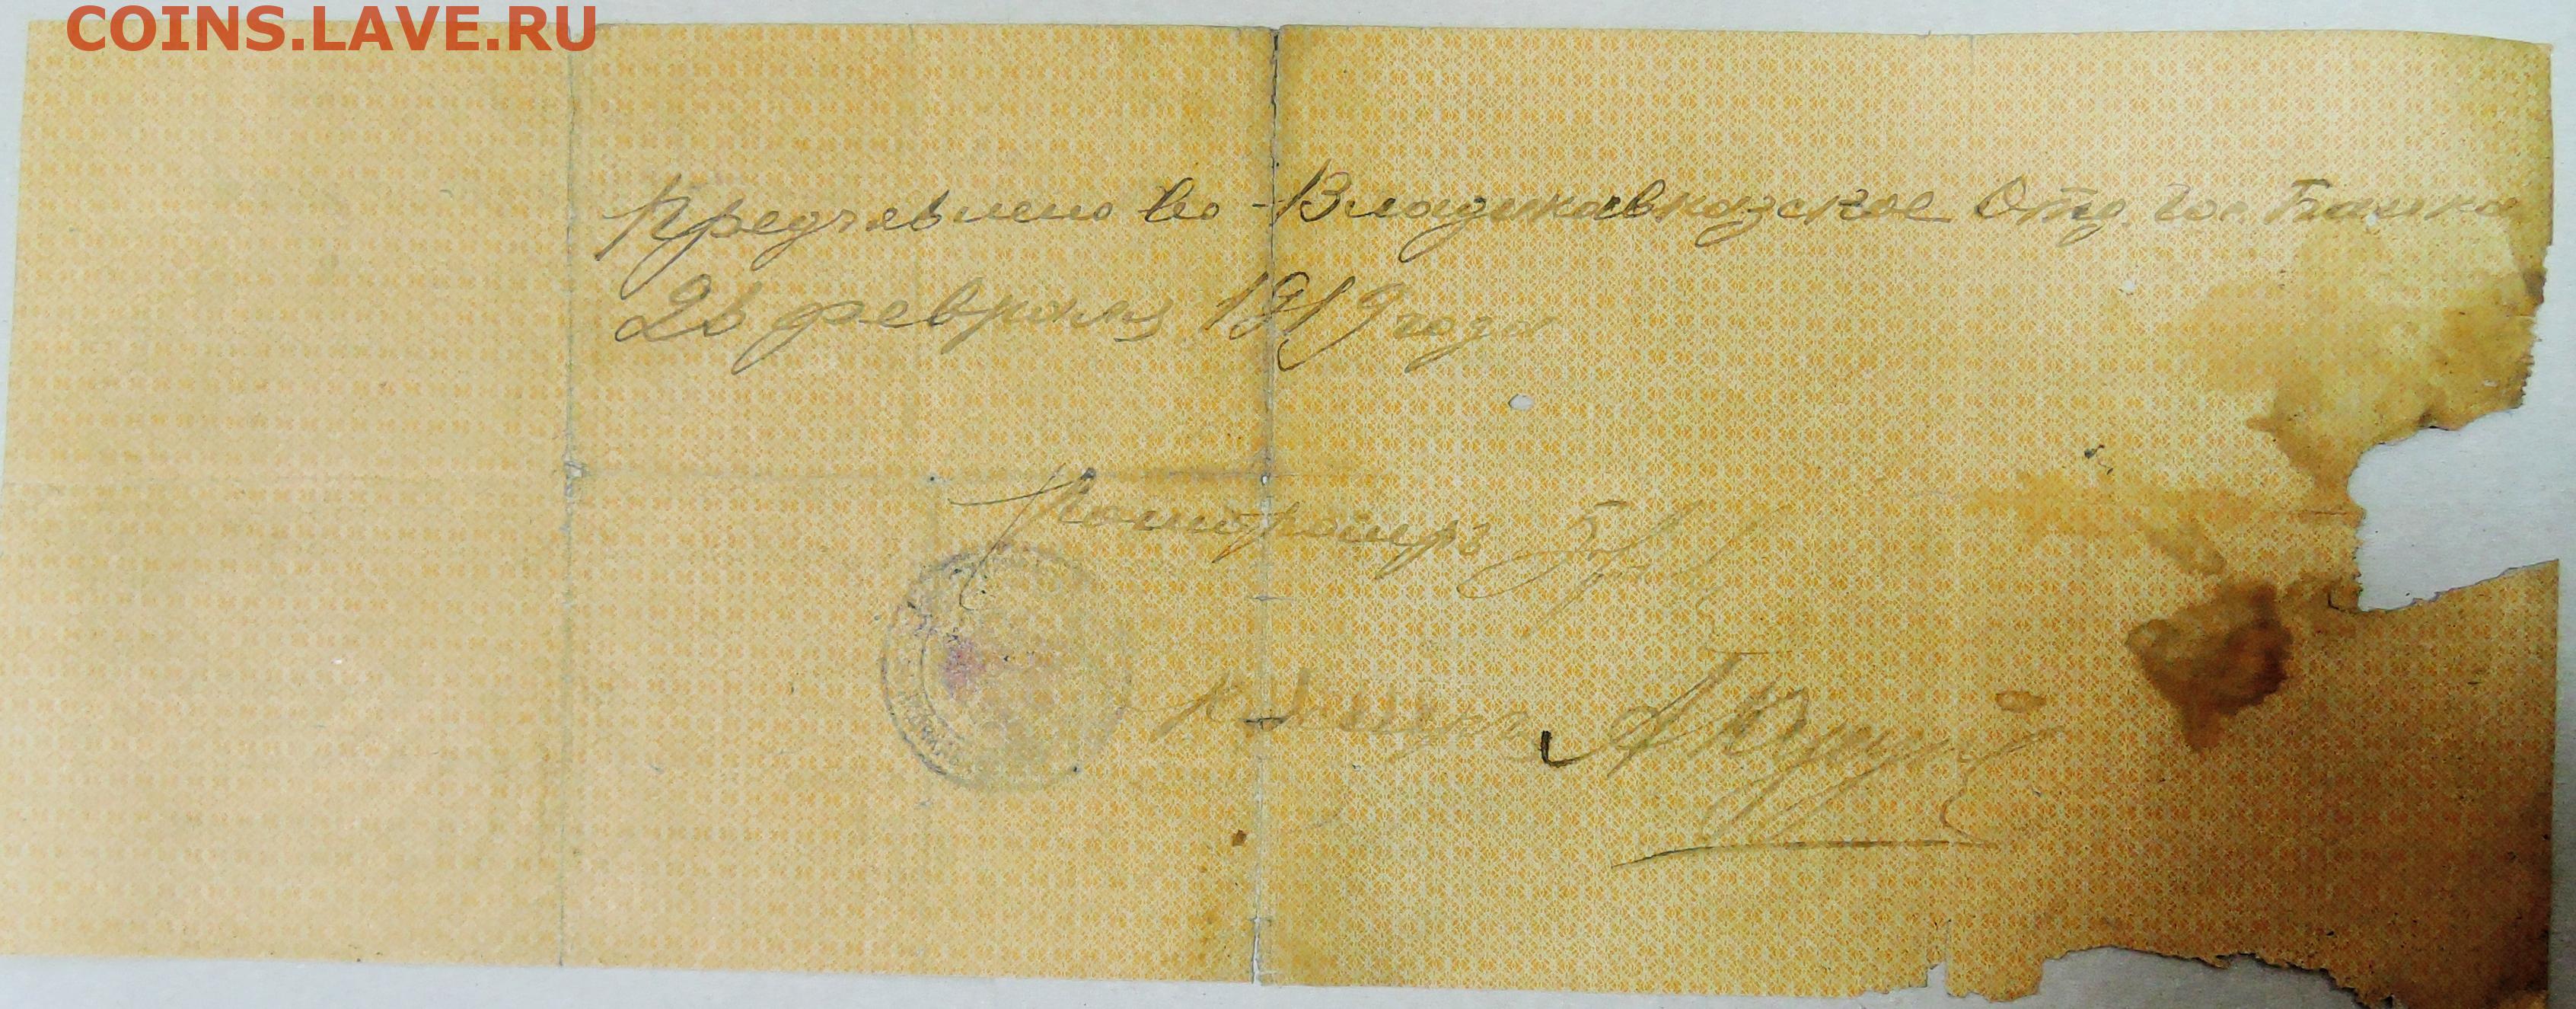 COINS.LAVE.RU
Предъявлено во Владикавказское Отд. Гос. Банка
26 февраля 1919 года
Контролеръ